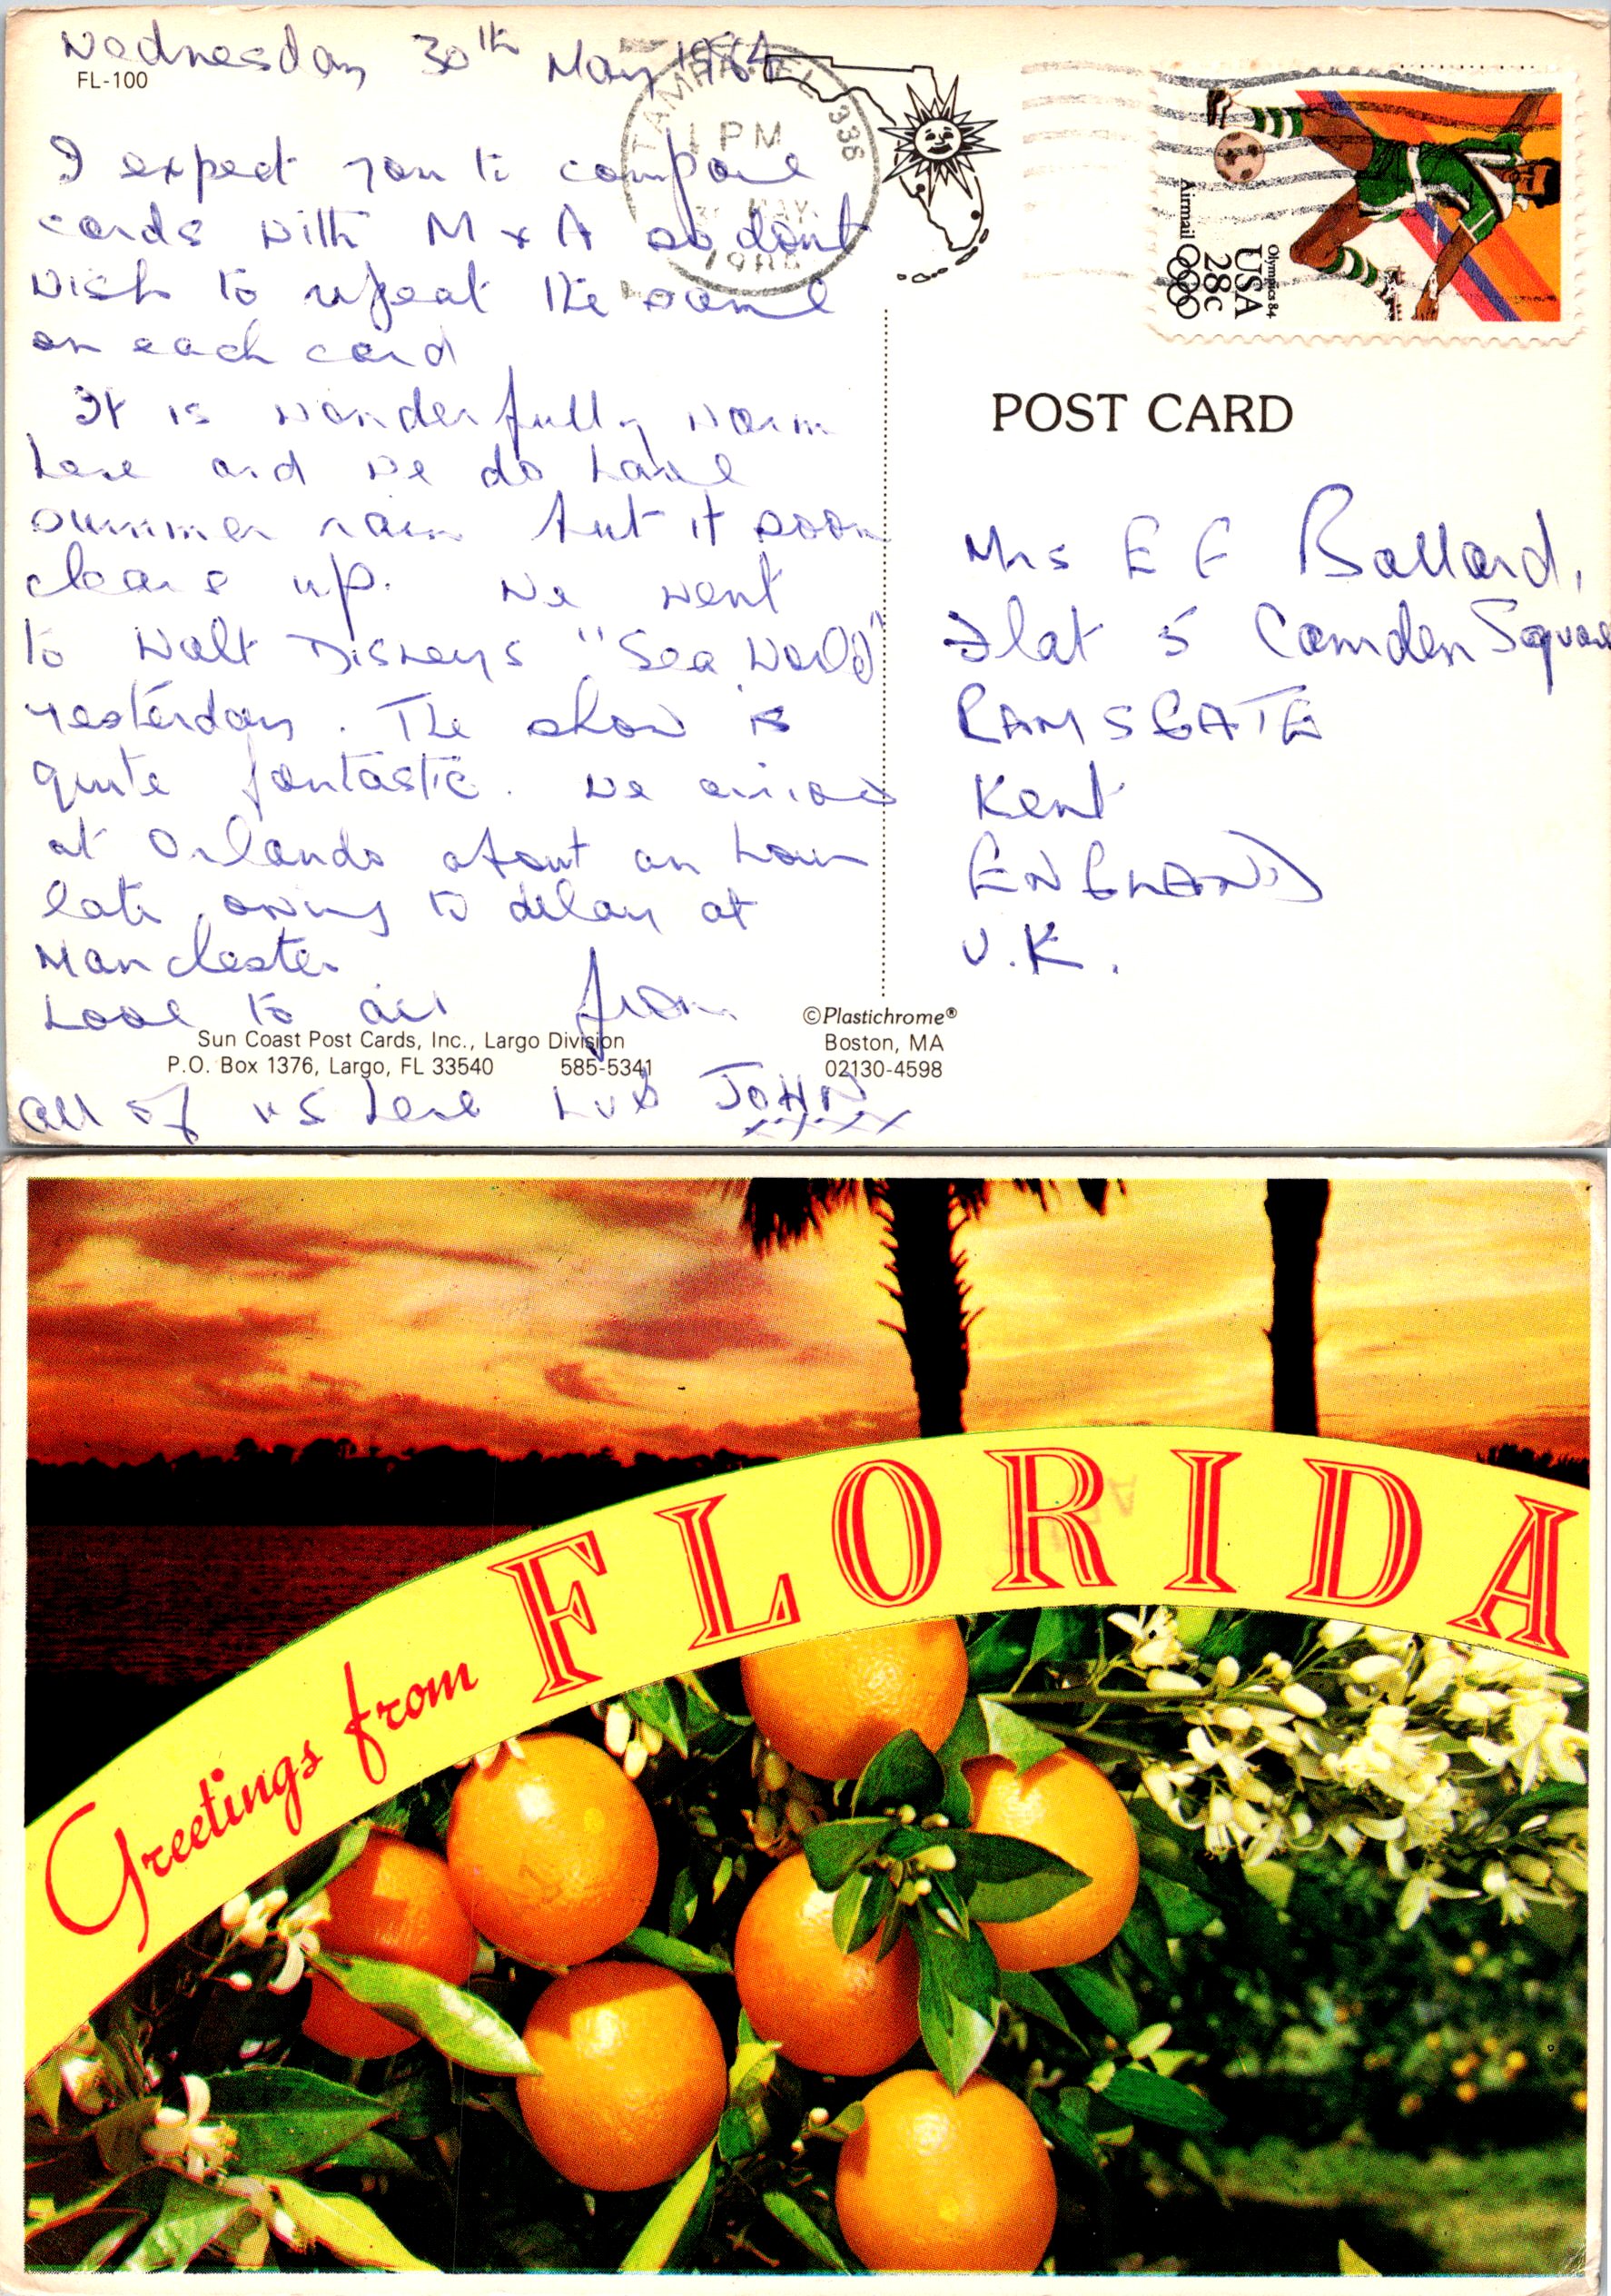 Wednesday 30th May 1984
FL-100
I expect you to compare
cards with M & A so dont
wish to repeat the same
on each card
It is wonderfully warm
here and we do have
summer rain but it soon
clears up. We went
to Walt Disneys "Sea World"
yesterday. The show is
quite fantastic. We arrived
at Orlando about an hour
late owing to delay at
Manchester
Love to all from
Sun Coast Post Cards, Inc., Largo Division
P.O. Box 1376, Largo, FL 33540 585-5341
all of us here Luv JOHN
xxxxx
©Plastichrome®
Boston, MA
02130-4598
TAMPA, FL 336
1 PM
30 MAY
Airmail
USA
28c
Olympics 84
POST CARD
Mrs E F Ballard,
Flat 5 Camden Square
RAMSGATE
Kent
ENGLAND
U.K.
Greetings from FLORIDA